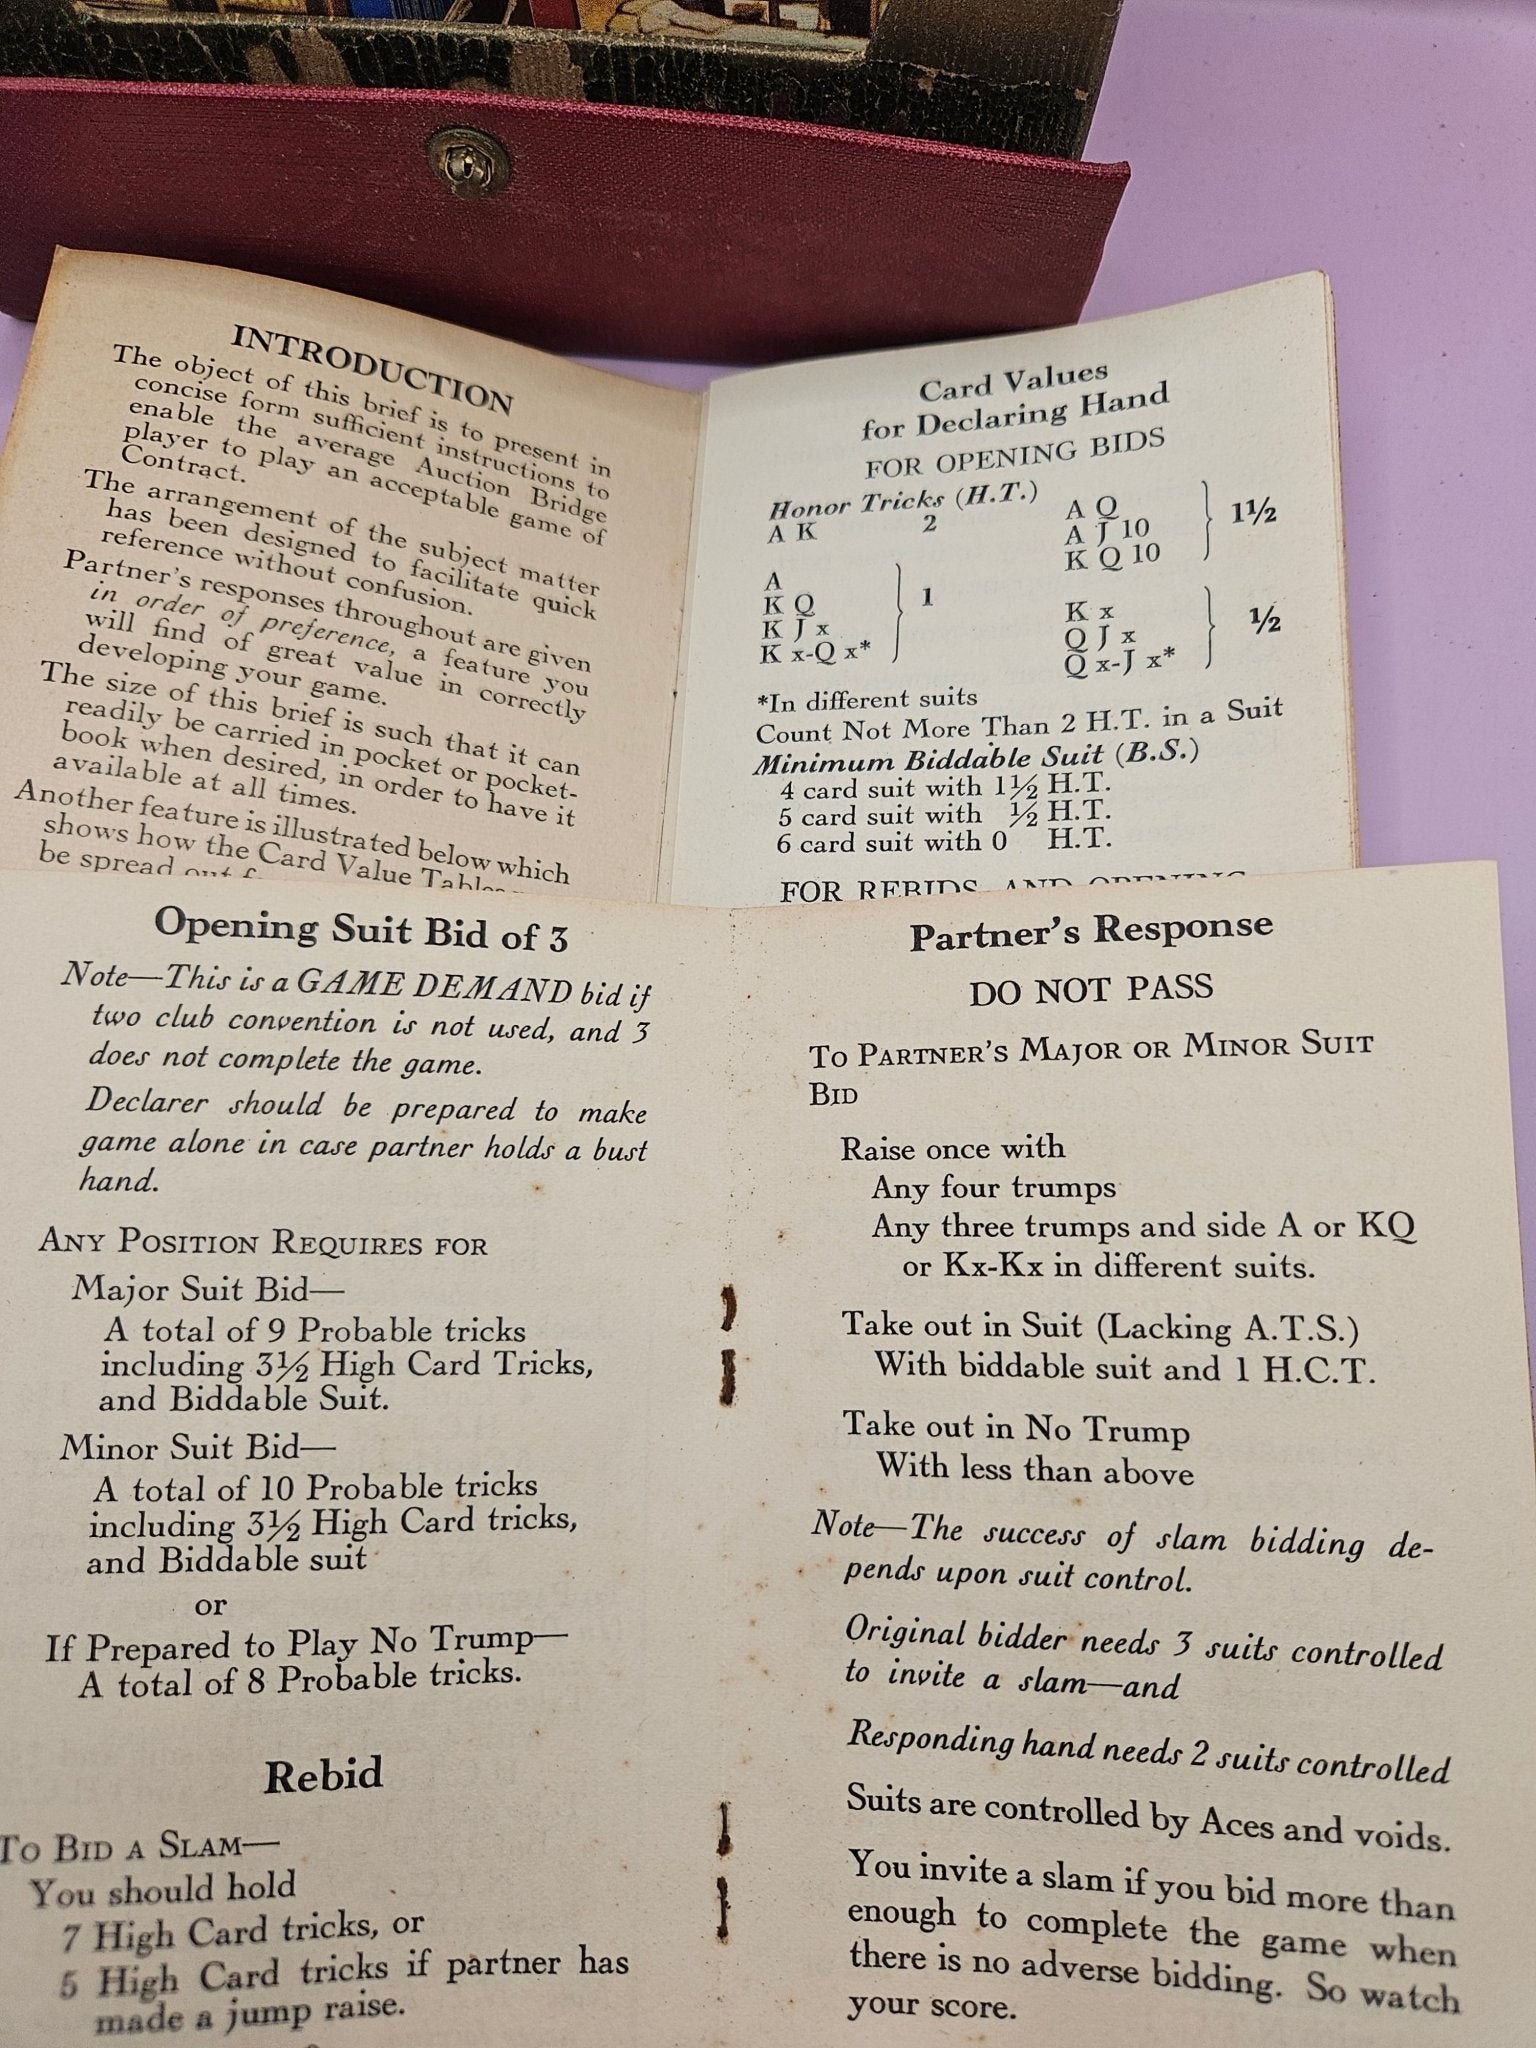 INTRODUCTION
The object of this brief is to present in
concise form sufficient instructions to
enable the average Auction Bridge
player to play an acceptable game of
Contract.
The arrangement of the subject matter
has been designed to facilitate quick
reference without confusion.
Partner's responses throughout are given
in order of preference, a feature you
will find of great value in correctly
developing your game.
The size of this brief is such that it can
readily be carried in pocket or pocket-
book when desired, in order to have it
available at all times.
Another feature is illustrated below which
shows how the Card Value Tables
be spread out
Card Values
for Declaring Hand
FOR OPENING BIDS
Honor Tricks (H.T.)
A K 2
A
K Q
K J x
K x-Q x* 1
A Q
A J 10
K Q 10 1½
K x
Q J x
Q x-J x* ½
*In different suits
Count Not More Than 2 H.T. in a Suit
Minimum Biddable Suit (B.S.)
4 card suit with 1½ H.T.
5 card suit with ½ H.T.
6 card suit with 0 H.T.
FOR REBIDS AND OPENING
Opening Suit Bid of 3
Note—This is a GAME DEMAND bid if
two club convention is not used, and 3
does not complete the game.
Declarer should be prepared to make
game alone in case partner holds a bust
hand.
ANY POSITION REQUIRES FOR
Major Suit Bid—
A total of 9 Probable tricks
including 3½ High Card Tricks,
and Biddable Suit.
Minor Suit Bid—
A total of 10 Probable tricks
including 3½ High Card tricks,
and Biddable suit
or
If Prepared to Play No Trump—
A total of 8 Probable tricks.
Rebid
TO BID A SLAM—
You should hold
7 High Card tricks, or
5 High Card tricks if partner has
made a jump raise.
Partner's Response
DO NOT PASS
TO PARTNER'S MAJOR OR MINOR SUIT
BID
Raise once with
Any four trumps
Any three trumps and side A or KQ
or Kx-Kx in different suits.
Take out in Suit (Lacking A.T.S.)
With biddable suit and 1 H.C.T.
Take out in No Trump
With less than above
Note—The success of slam bidding de-
pends upon suit control.
Original bidder needs 3 suits controlled
to invite a slam—and
Responding hand needs 2 suits controlled
Suits are controlled by Aces and voids.
You invite a slam if you bid more than
enough to complete the game when
there is no adverse bidding. So watch
your score.